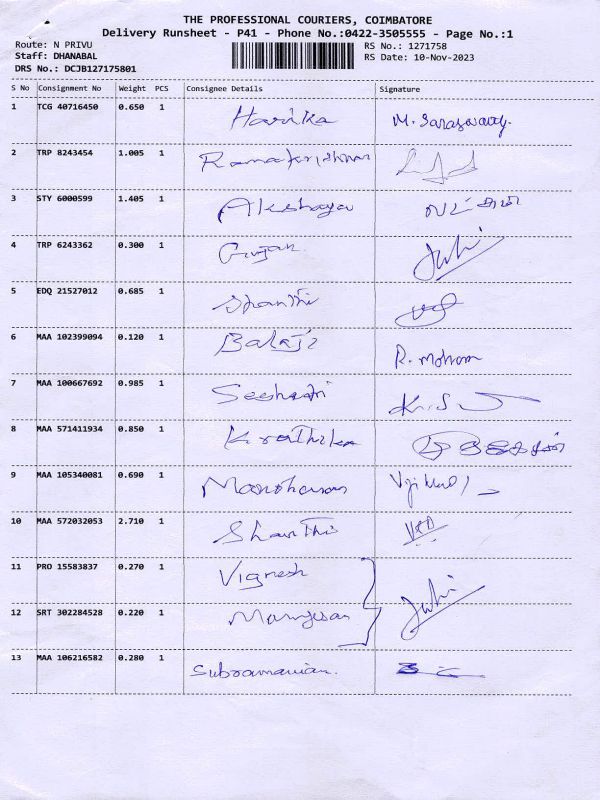 THE PROFESSIONAL COURIERS, COIMBATORE
Delivery Runsheet - P41 - Phone No.:0422-3505555 - Page No.:1
Route: N PRIVU RS No.: 1271758
Staff: DHANABAL RS Date: 10-Nov-2023
DRS No.: DCJB127175801
S No Consignment No Weight PCS Consignee Details Signature
1 TCG 40716450 0.650 1 Harika M. Saraswathy
2 TRP 8243454 1.005 1 Ramakrishnan
3 STY 6000599 1.405 1 Akshaya
4 TRP 6243362 0.300 1 Gunjan Juhi
5 EDQ 21527012 0.685 1 Shanthi
6 MAA 102399094 0.120 1 Balaji R. Mohan
7 MAA 100667692 0.985 1 Seshadri
8 MAA 571411934 0.850 1 Krathika
9 MAA 105340081 0.690 1 Manoharan
10 MAA 572032053 2.710 1 Shanthi
11 PRO 15583837 0.270 1 Vignesh
12 SRT 302284528 0.220 1 Murugesan Juhi
13 MAA 106216582 0.280 1 Subramanian.